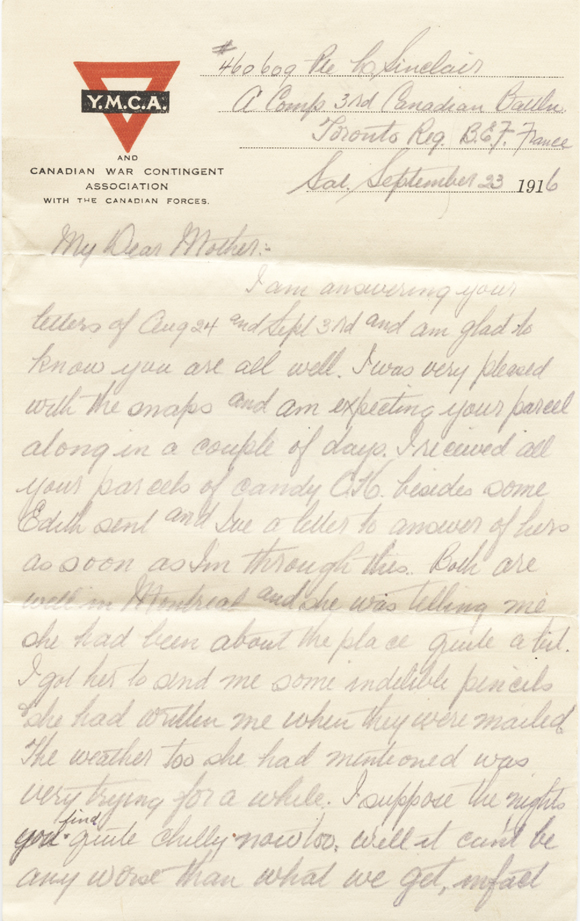 Y.M.C.A.
AND
CANADIAN WAR CONTINGENT
ASSOCIATION
WITH THE CANADIAN FORCES.
#460609 Pte C Sinclair
A Comp. 3rd Canadian Battln.
Toronto Reg. B.E.F. France
Sat. September 23 1916
My Dear Mother:-
I am answering your
letters of Aug 24 and Sept 3rd and am glad to
know you are all well. I was very pleased
with the snaps and am expecting your parcel
along in a couple of days. I received all
your parcels of candy O.K. besides some
Edith sent and I've a letter to answer of hers
as soon as I'm through this. Both are
well in Montreal and she was telling me
she had been about the place quite a bit.
I got her to send me some indelible pencils
she had written me when they were mailed
The weather too she had mentioned was
very trying for a while. I suppose the nights
you find quite chilly now too. well it can't be
any worse than what we get, infact